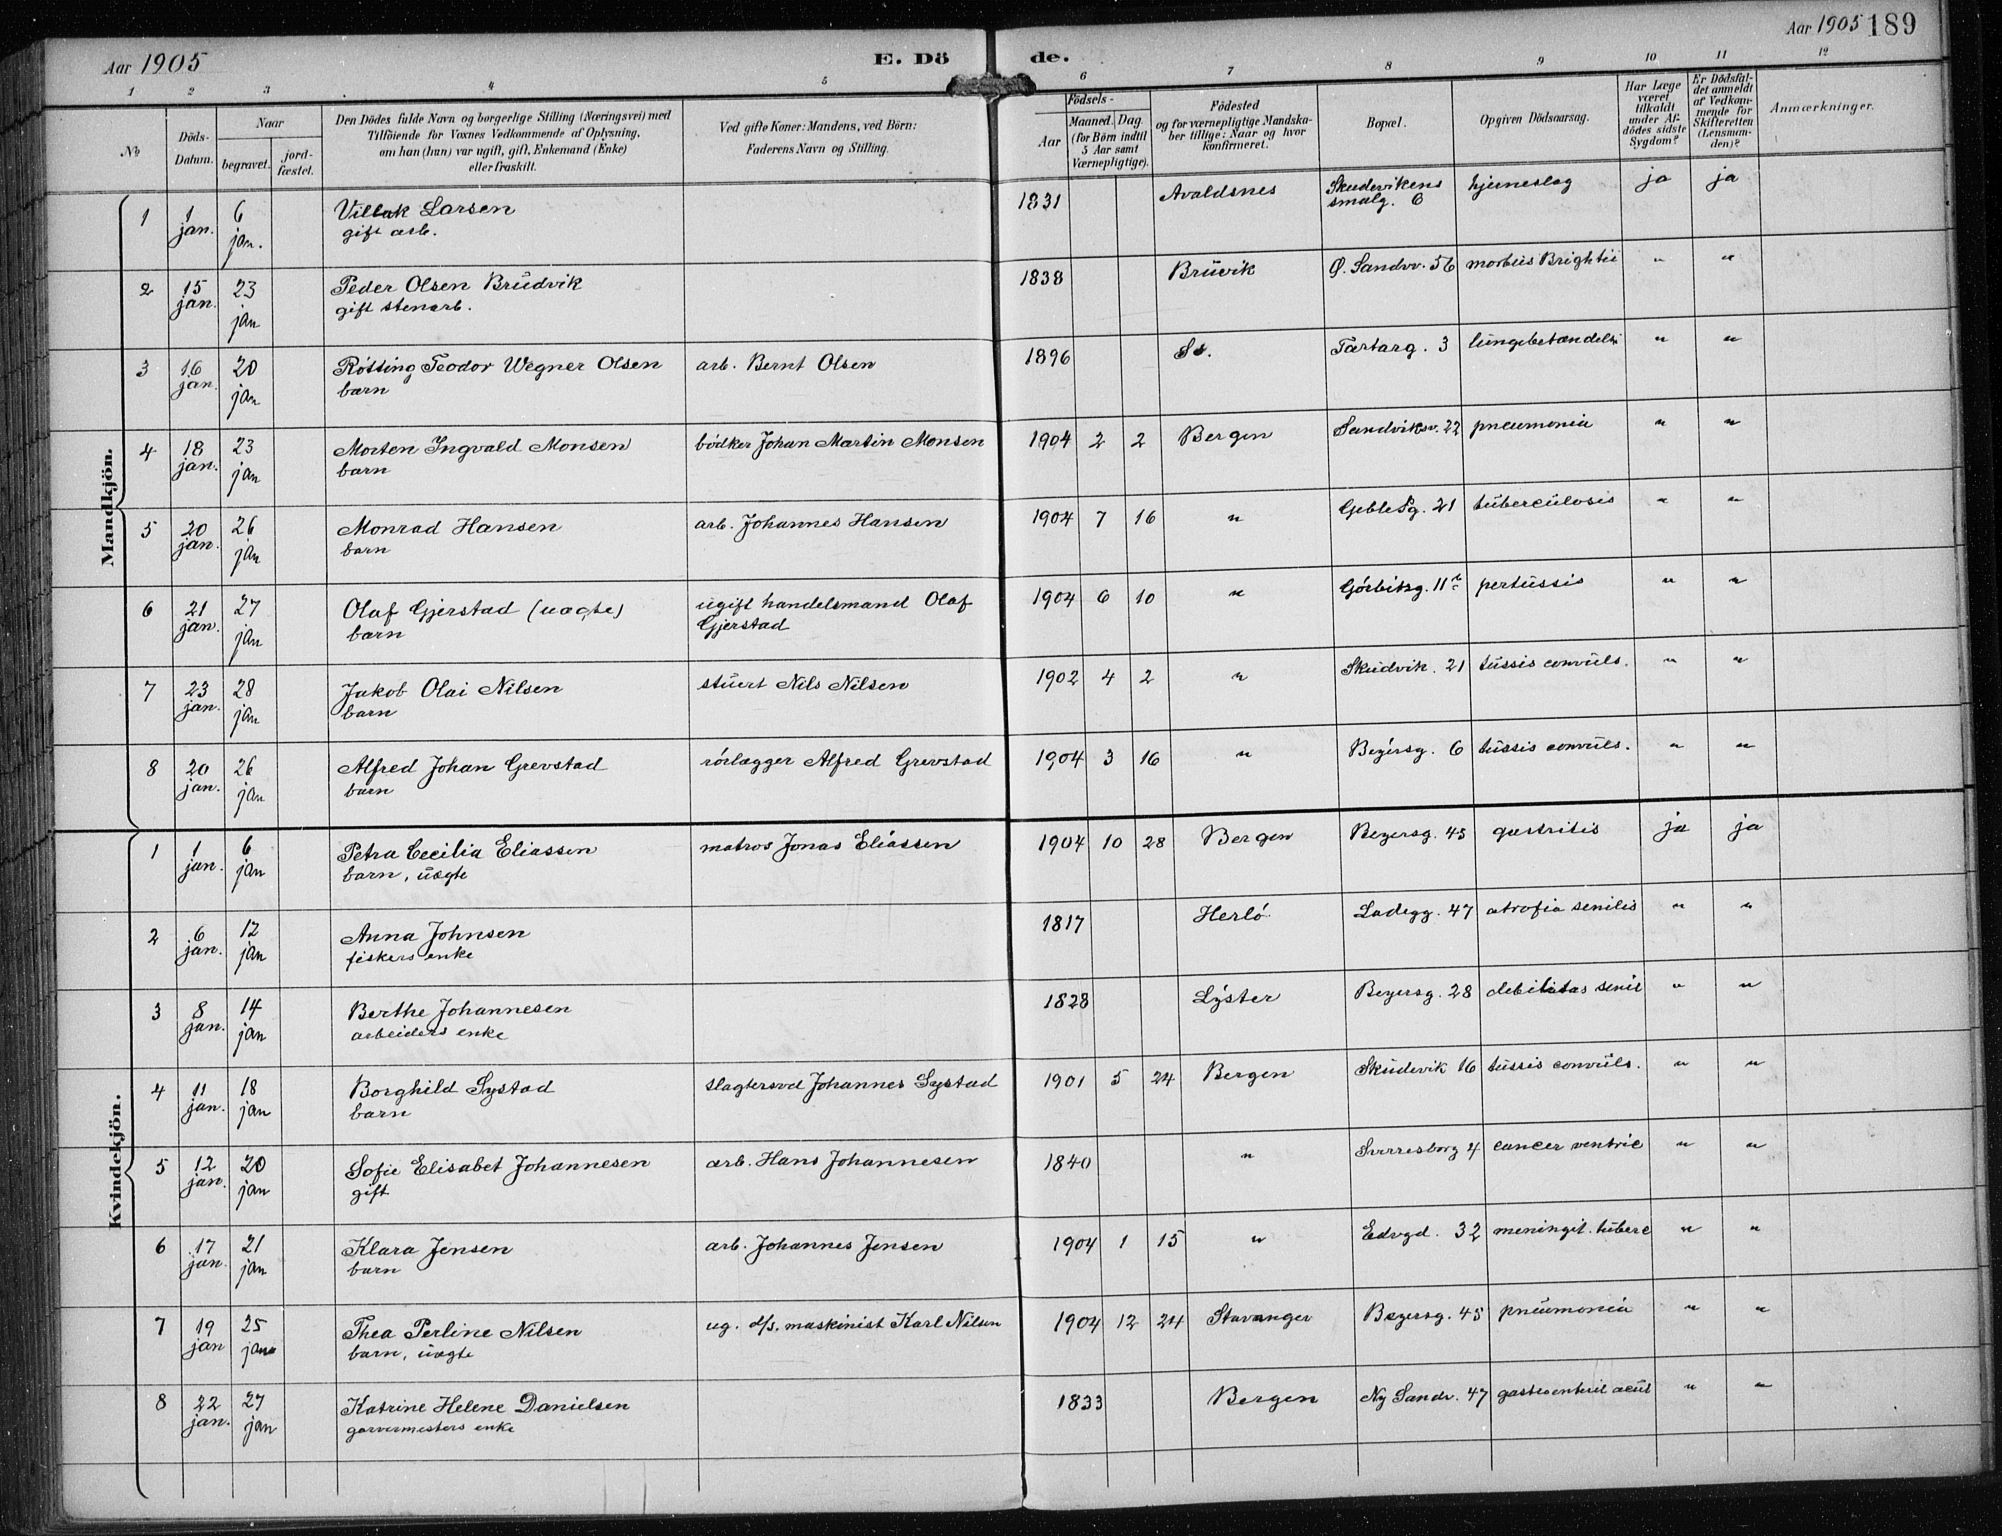 Aar 1905
E. Dö de.
Aar 1905 189
1 2 3 4 5 6 7 8 9 10 11 12
№
Döds-Datum.
Naar
begravet.
jord-fæstet.
Den Dödes fulde Navn og borgerlige Stilling (Næringsvei) med
Tilföiende for Voxnes Vedkommende af Oplysning,
om han (hun) var ugift, gift, Enkemand (Enke)
eller fraskilt.
Ved gifte Koner: Mandens, ved Börn:
Faderens Navn og Stilling.
Födsels-
Aar
Maaned. Dag.
(for Börn indtil
5 Aar samt
Værnepligtige).
Födested
og for værnepligtige Mandska-
ber tillige: Naar og hvor
konfirmeret.
Bopæl.
Opgiven Dödsaarsag.
Har Læge
været
tilkaldt
under Af-
dödes sidste
Sygdom?
Er Dödsfal-
det anmeldt
af Vedkom-
mende for
Skifteretten
(Lensman-
den)?
Anmærkninger.
Mandkjön.
1 1 jan. 6 jan. Villak Larsen 1831 Avaldsnes Skudevikens smalg. 6 hjerneslag ja ja
gift arb.
2 15 jan. 23 jan Peder Olsen Brudvik 1838 Bruvik Ø. Sandvv. 56 morbus Brightii " "
gift stenarb.
3 16 jan. 20 jan Rötting Teodor Wegner Olsen arb. Bernt Olsen 1896 Ss. Tartarg. 3 lungebetændelse " "
barn
4 18 jan. 23 jan Morten Ingvald Monsen bödker Johan Martin Monsen 1904 2 2 Bergen Sandviksv. 22 pneumonia " "
barn
5 20 jan. 26 jan Monrad Hansen arb. Johannes Hansen 1904 7 16 " Gblesg. 21 tuberculosis " "
barn
6 21 jan. 27 jan Olaf Gjerstad (uægte) ugift handelsmand Olaf Gjerstad 1904 6 10 " Görbitzg. 11 pertussis " "
barn
7 23 jan. 28 jan Jakob Olai Nilsen stuert Nils Nilsen 1902 4 2 " Skudvik. 21 tussis convuls. " "
barn
8 20 jan. 26 jan Alfred Johan Grevstad rörlægger Alfred Grevstad 1904 3 16 " Beyersg. 6 tussis convuls. " "
barn
Kvindekjön.
1 1 jan. 6 jan Petra Cecilia Eliassen matros Jonas Eliassen 1904 10 28 Bergen Beyersg. 45 gastritis ja ja
barn, uægte
2 6 jan. 12 jan Anna Johnsen 1817 Herlö Ladegg. 47 atrofia senilis " "
fiskers enke
3 8 jan. 14 jan Berthe Johannesen 1828 Lyster Beyersg. 28 debilitas senil " "
arbeiders enke
4 11 jan. 18 jan Borghild Systad slagtersvd Johannes Systad 1901 5 24 Bergen Skudevik 16 tussis convuls. " "
barn
5 12 jan. 20 jan Sofie Elisabet Johannesen arb. Hans Johannesen 1840 " Sverresborg 4 cancer ventric " "
gift
6 17 jan. 21 jan Klara Jensen arb. Johannes Jensen 1904 1 15 " Edvgd. 32 meningit. tuberc " "
barn
7 19 jan 25 jan Thea Perline Nilsen ug. d/s. maskinist Karl Nilsen 1904 12 24 Stavanger Beyersg. 45 pneumonia " "
barn, uægte
8 22 jan. 27 jan Katrine Helene Danielsen 1833 Bergen Ny Sandv. 47 gastroenterit acut " "
garvermesters enke